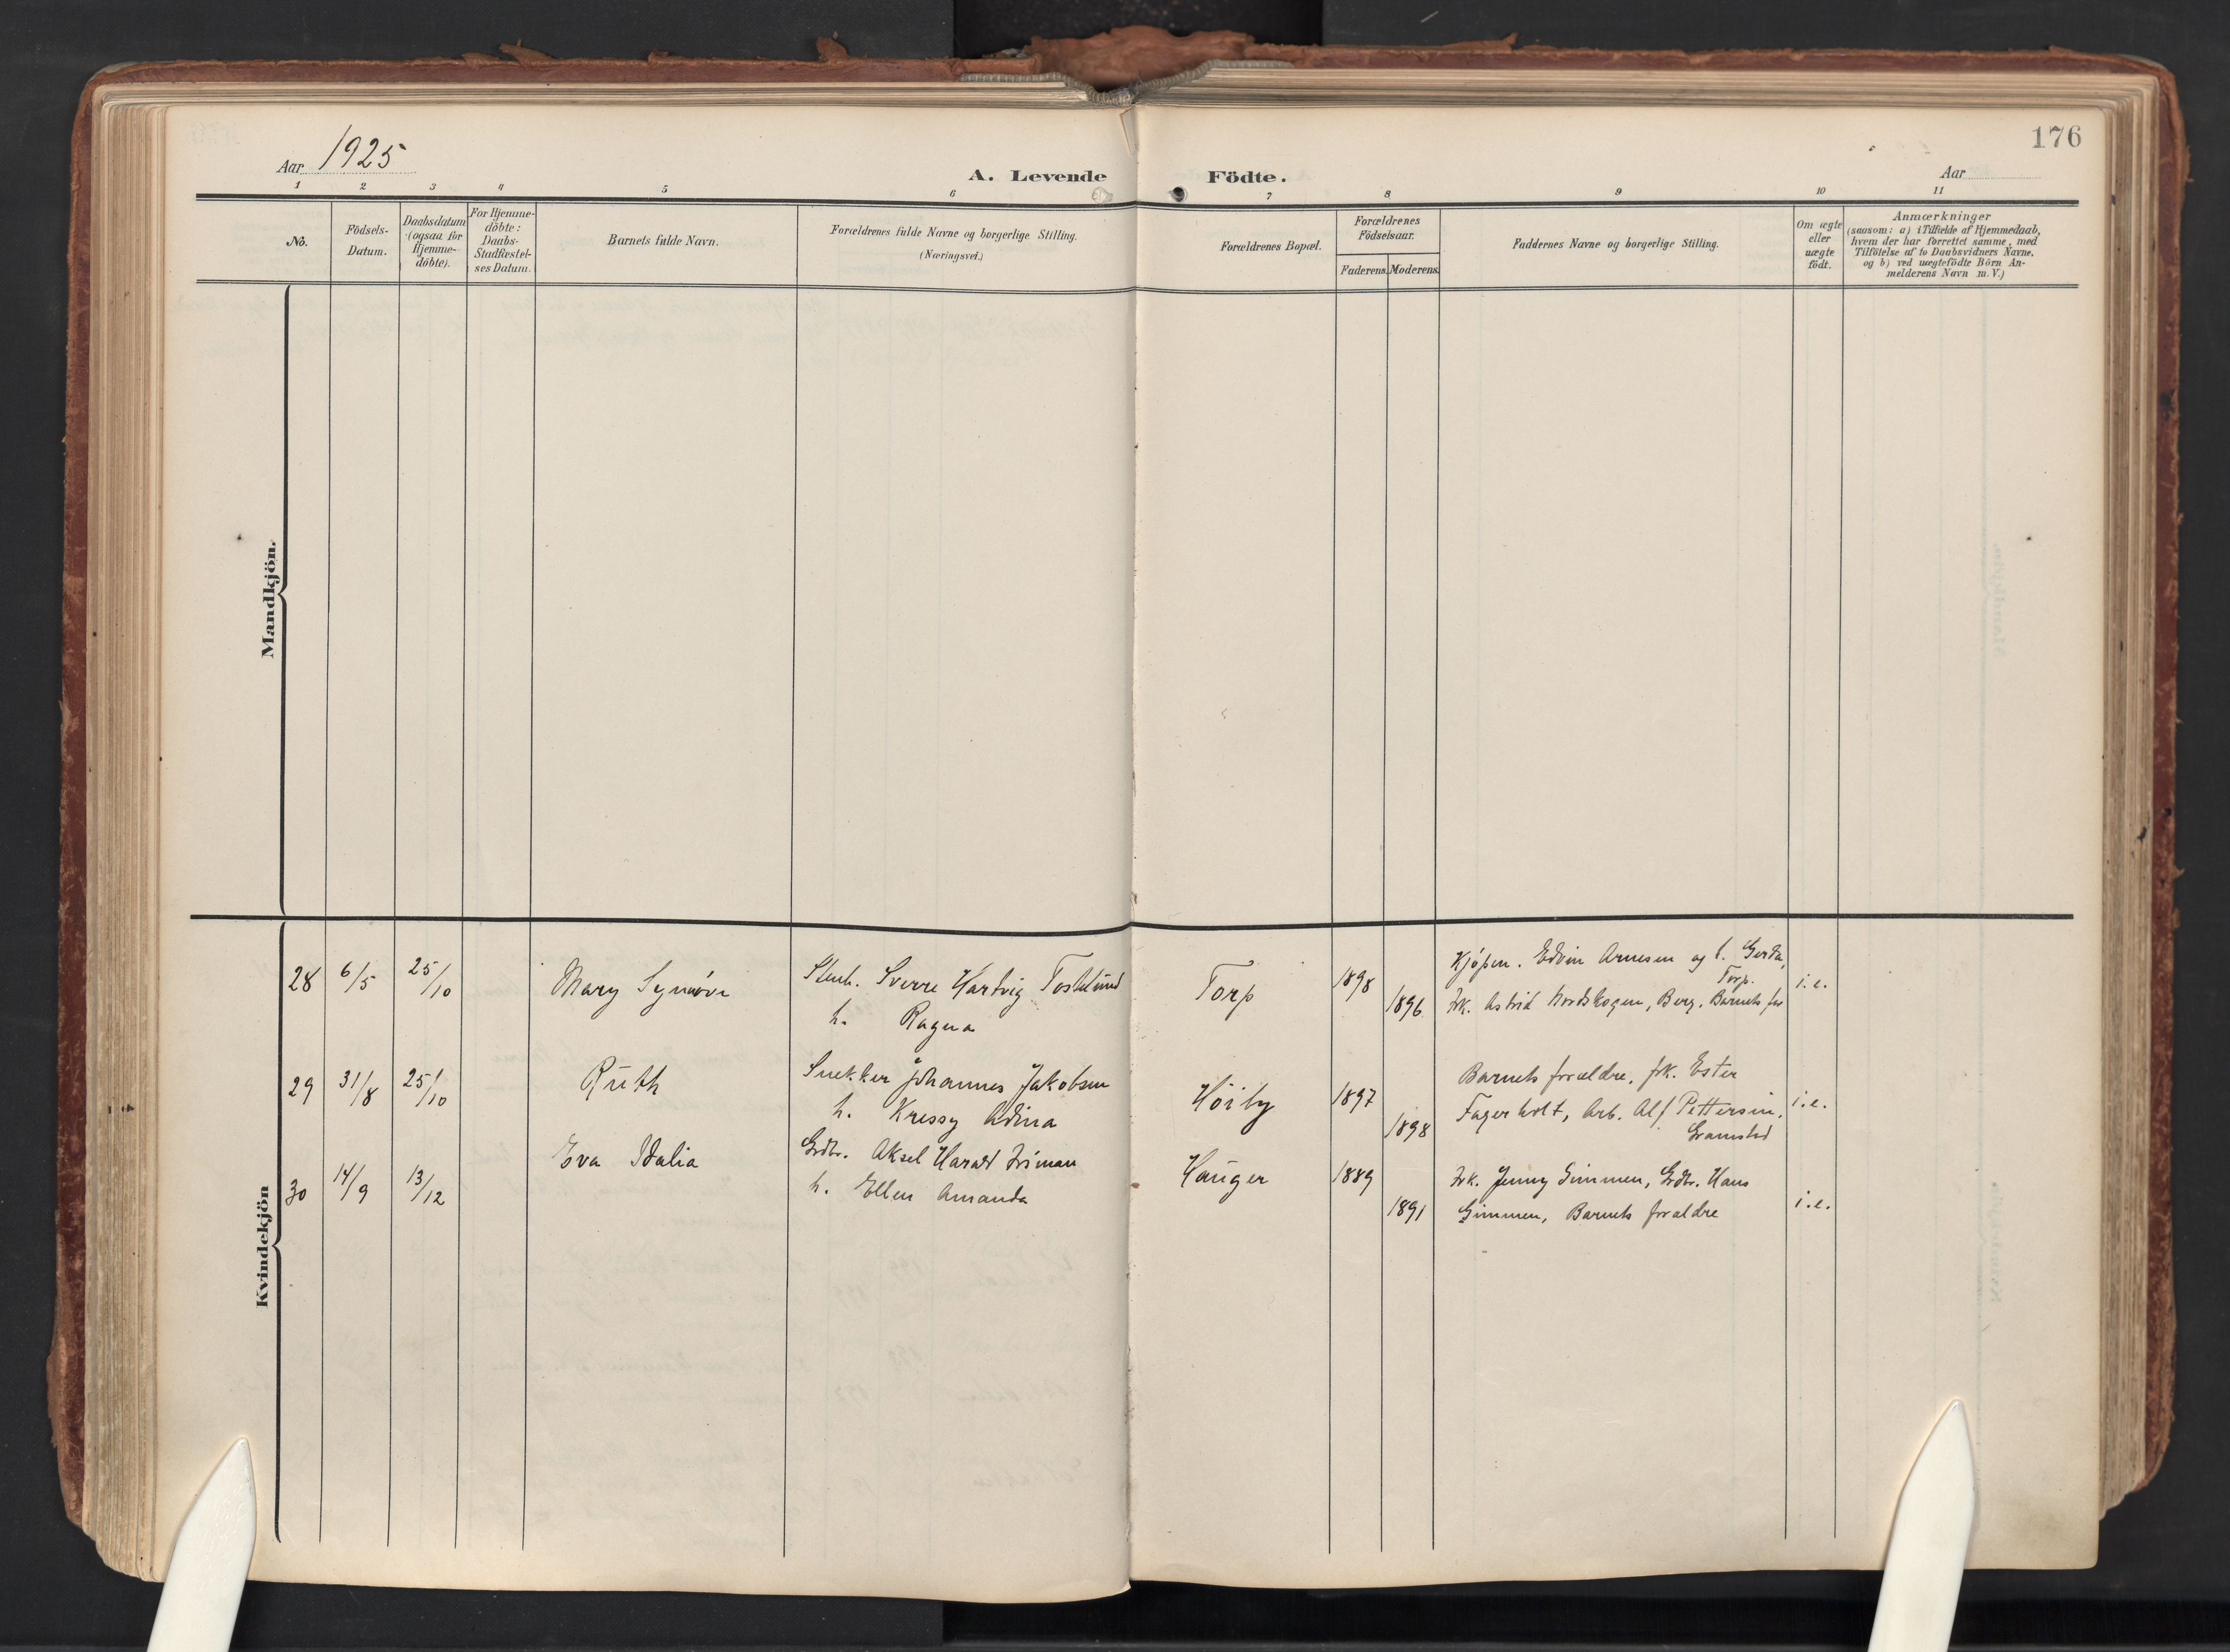 176
Aar 1925
A. Levende Födte.
Aar
1 2 3 4 5 6 7 8 9 10 11
No.
Födsels-
Datum.
Daabsdatum
(ogsaa for
Hjemme-
döbte).
For Hjemme-
döbte:
Daabs-
Stadfæstel-
ses Datum.
Barnets fulde Navn.
Forældrenes fulde Navne og borgerlige Stilling.
(Næringsvei.)
Forældrenes Bopæl.
Forældrenes
Födselsaar.
Faderens. Moderens.
Faddernes Navne og borgerlige Stilling.
Om ægte
eller
uægte
födt.
Anmærkninger
(saasom: a) i Tilfælde af Hjemmedaab,
hvem der har forrettet samme, med
Tilföielse af to Daabsvidners Navne,
og b) ved uægtefödte Börn An-
melderens Navn m. V.)
Mandkjön.
Kvindekjön
28 6/5 25/10 Mary Synnöve
Sverre Hartvig
h. Ragna
Torp 1898
1896
Kjöpm. Edvin Arnesen og h. Gerda,
Torp.
frk. Astrid Nordskogen, Berg. Barnets far
i.e.
29 31/8 25/10 Ruth
Snekker Johannes Jakobsen
h. Kressy Adina
Höiby 1897
1898
Barnets forældre, frk. Ester
Fagerholt, Arb. Alf Pettersen,
i.e.
30 14/9 13/12 Eva Idalia
Grdbr. Aksel Harald
h. Ellen Amanda
Hauger 1889
1891
frk. Jenny Gimmen, Grdbr. Hans
Gimmen, Barnets forældre
i.e.